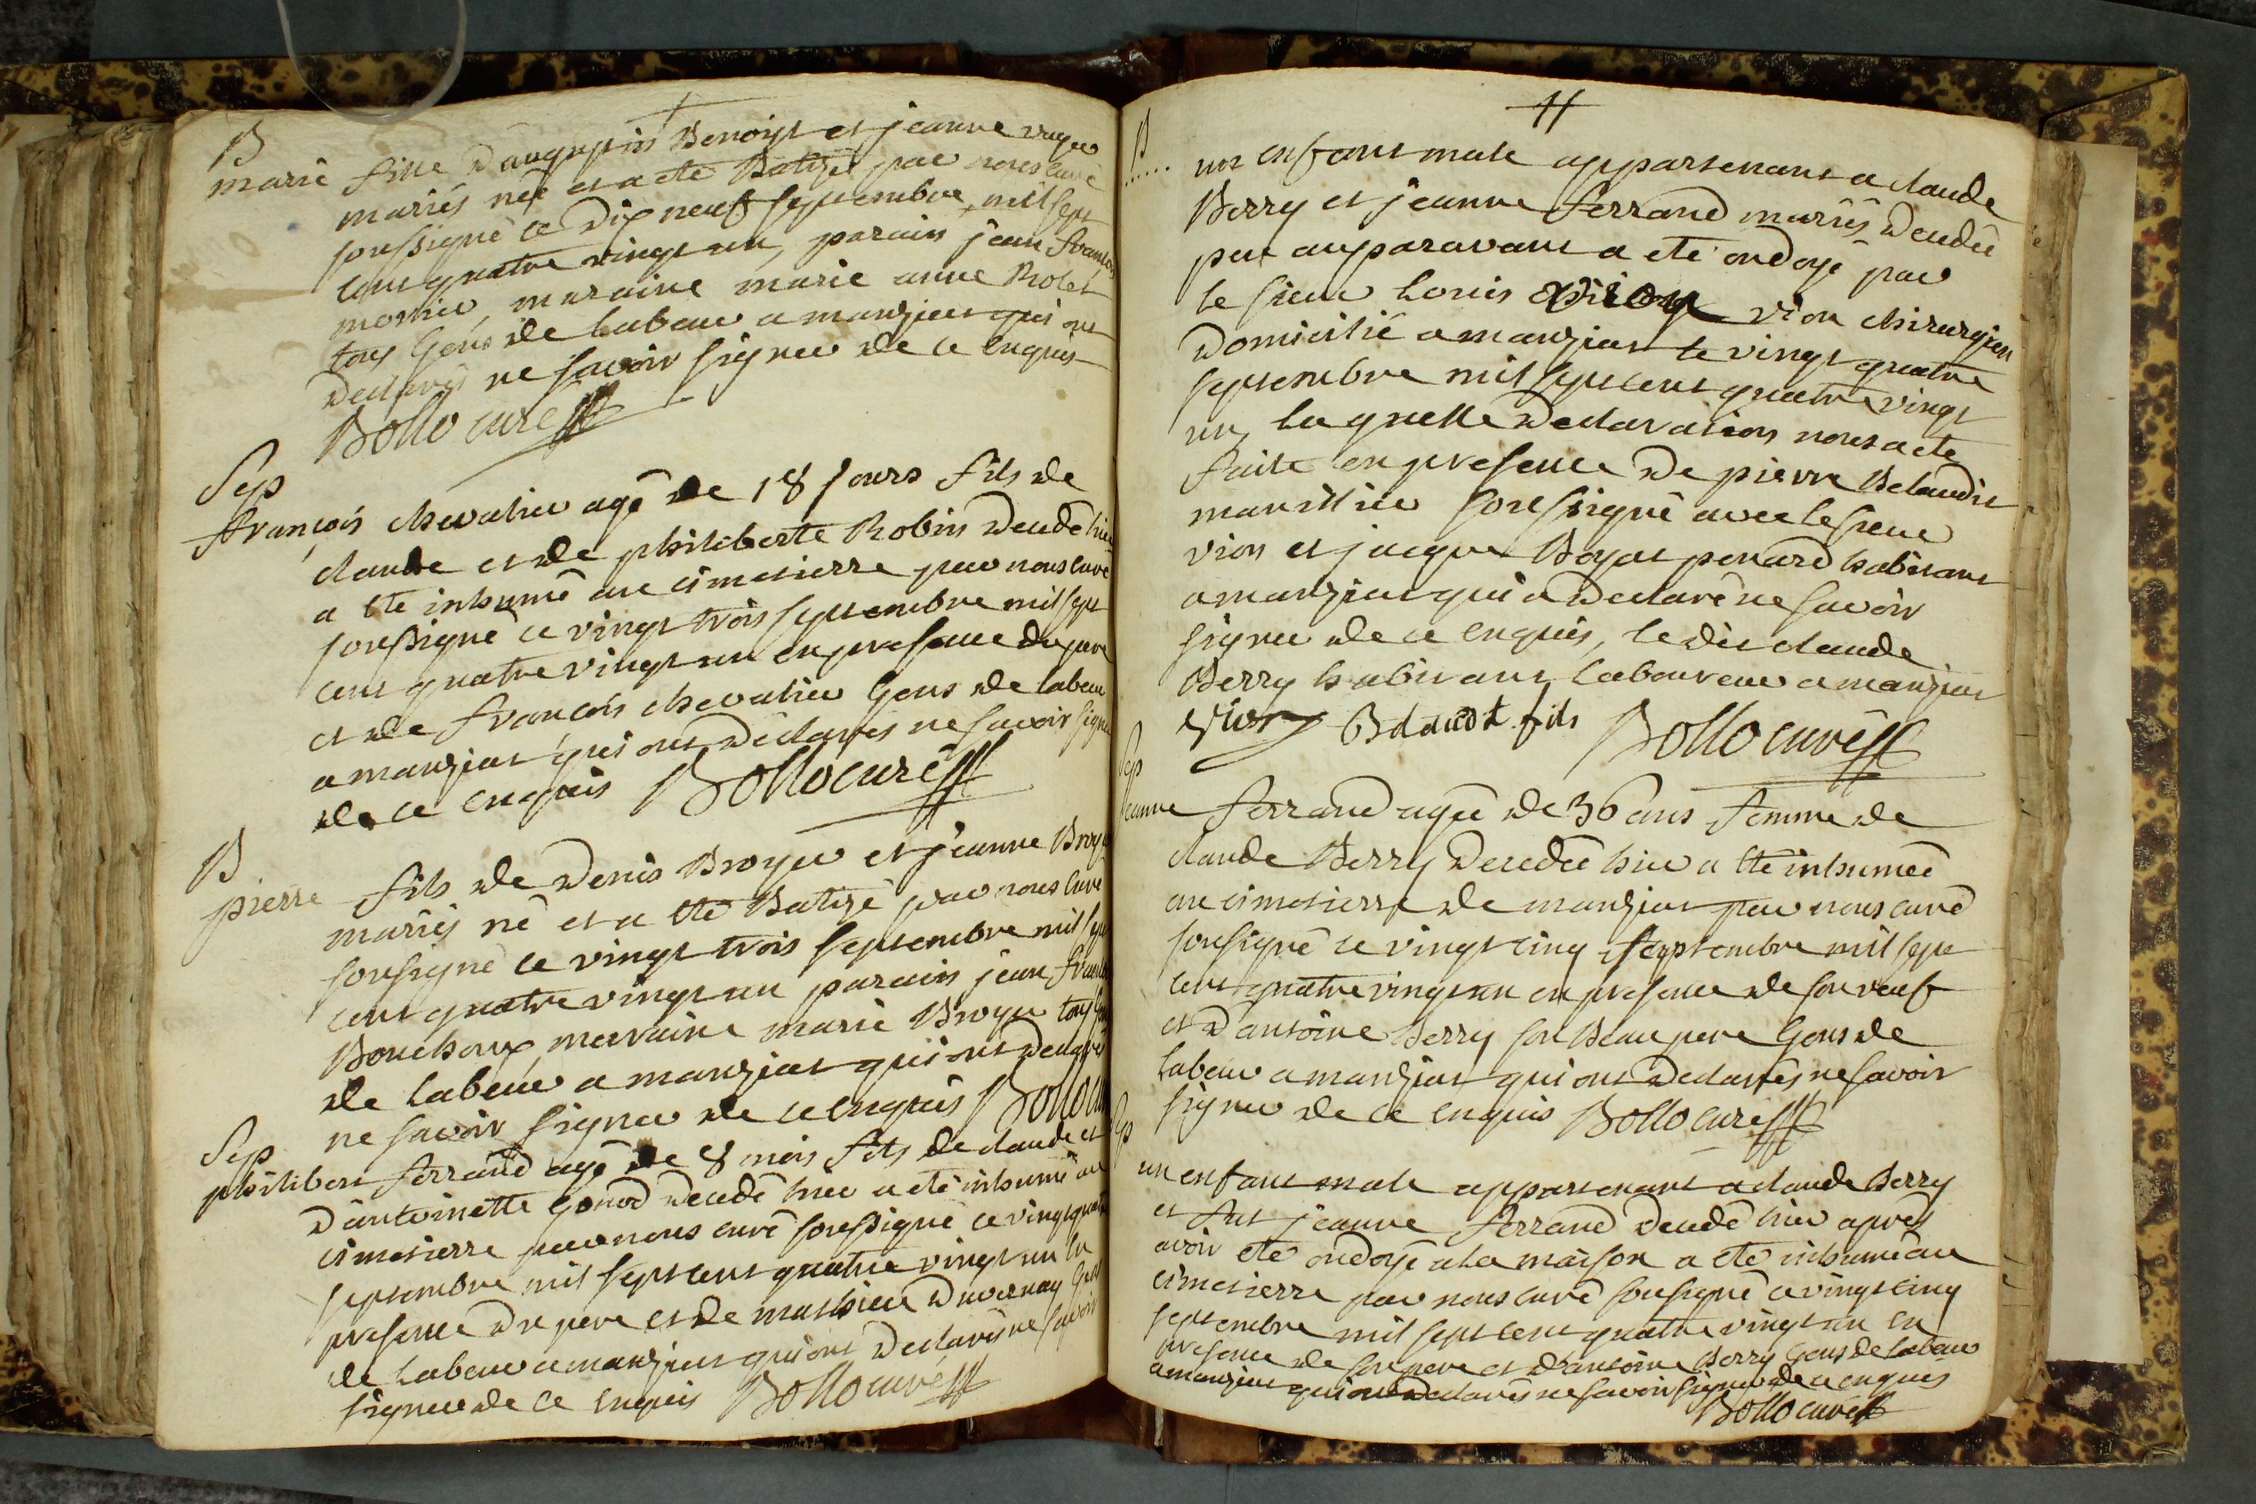 B
marie fille d'augustin Benoist et jeanne
mariés née et a ete Batizé par nous curé
soussigné ce dix neuf septembre mil sept
cent quatre vingt un, parain jean francois
maraine marie anne Rolet
tous Gens de labeur a manziat qui ont
declarés ne savoir signer de ce enquis
Bollo curé
Sep
françois chevalier agé de 18 jours fils de
claude et de philiberte Robin decedé hier
a ete inhumé au cimetierre par nous curé
soussigné ce vingt trois septembre mil sept
cent quatre vingt un en presence du pere
et de françois chevalier Gens de labeur
a manziat qui ont declarés ne savoir signer
de ce enquis Bollo curé
B
pierre fils de denis Broyer et jeanne Broyer
mariés né et a ete Batizé par nous curé
sousigné ce vingt trois septembre mil sept
cent quatre vingt un parain jean
Bouchoux marraine marie Broyer tous
de labeur a manziat qui ont declarés
ne savoir signer de ce enquis Bollo
Sep
philibert ferrand agé de 8 mois fils de claude et
d'antoinette Gonod decedé hier a eté inhumé au
cimetierre par nous curé soussigné ce vingt quatre
septembre mil sept cent quatre vingt un en
presence du pere et de mathieu duvernay Gens
de labeur a manziat qui ont declarés ne savoir
signer de ce enquis Bollo curé
B
un enfant male appartenant a claude
Berry et jeanne ferrand mariés decedée
peu auparavant a eté ondoyé par
le sieur Louis vion chirurgien
domicilié a manziat le vingt quatre
septembre mil sept cent quatre vingt
un, laquelle declaration nous a ete
faite en presence de pierre Belaudit
marillier sousigné avec le sieur
vion et jacque Boyat penard habitant
a manziat qui a declaré ne savoir
signer de ce enquis, le dit claude
Berry habitant laboureur a manziat
Vion Blaudit fils Bollo curé
Sep
jeanne ferrand agée de 36 ans femme de
claude Berry decedée hier a été inhumeé
au cimetierre de manziat par nous curé
sousigné ce vingt cinq septembre mil sept
cent quatre vingt un en presence de son veuf
et d'antoine Berry son Beau pere Gens de
labeur a manziat qui ont declarés ne savoir
signer de ce enquis Bollo curé
Sep
un enfant male appartenant a claude Berry
et jeanne ferrand decedé hier apres
avoir eté ondoyé a la maison a eté inhumé au
cimetierre par nous curé sousigné ce vingt cinq
septembre mil sept cent quatre vingt un en
presence de son pere et d'antoine Berry Gens de labeur
a manziat qui ont declarés ne savoir signer de ce enquis
Bollo curé